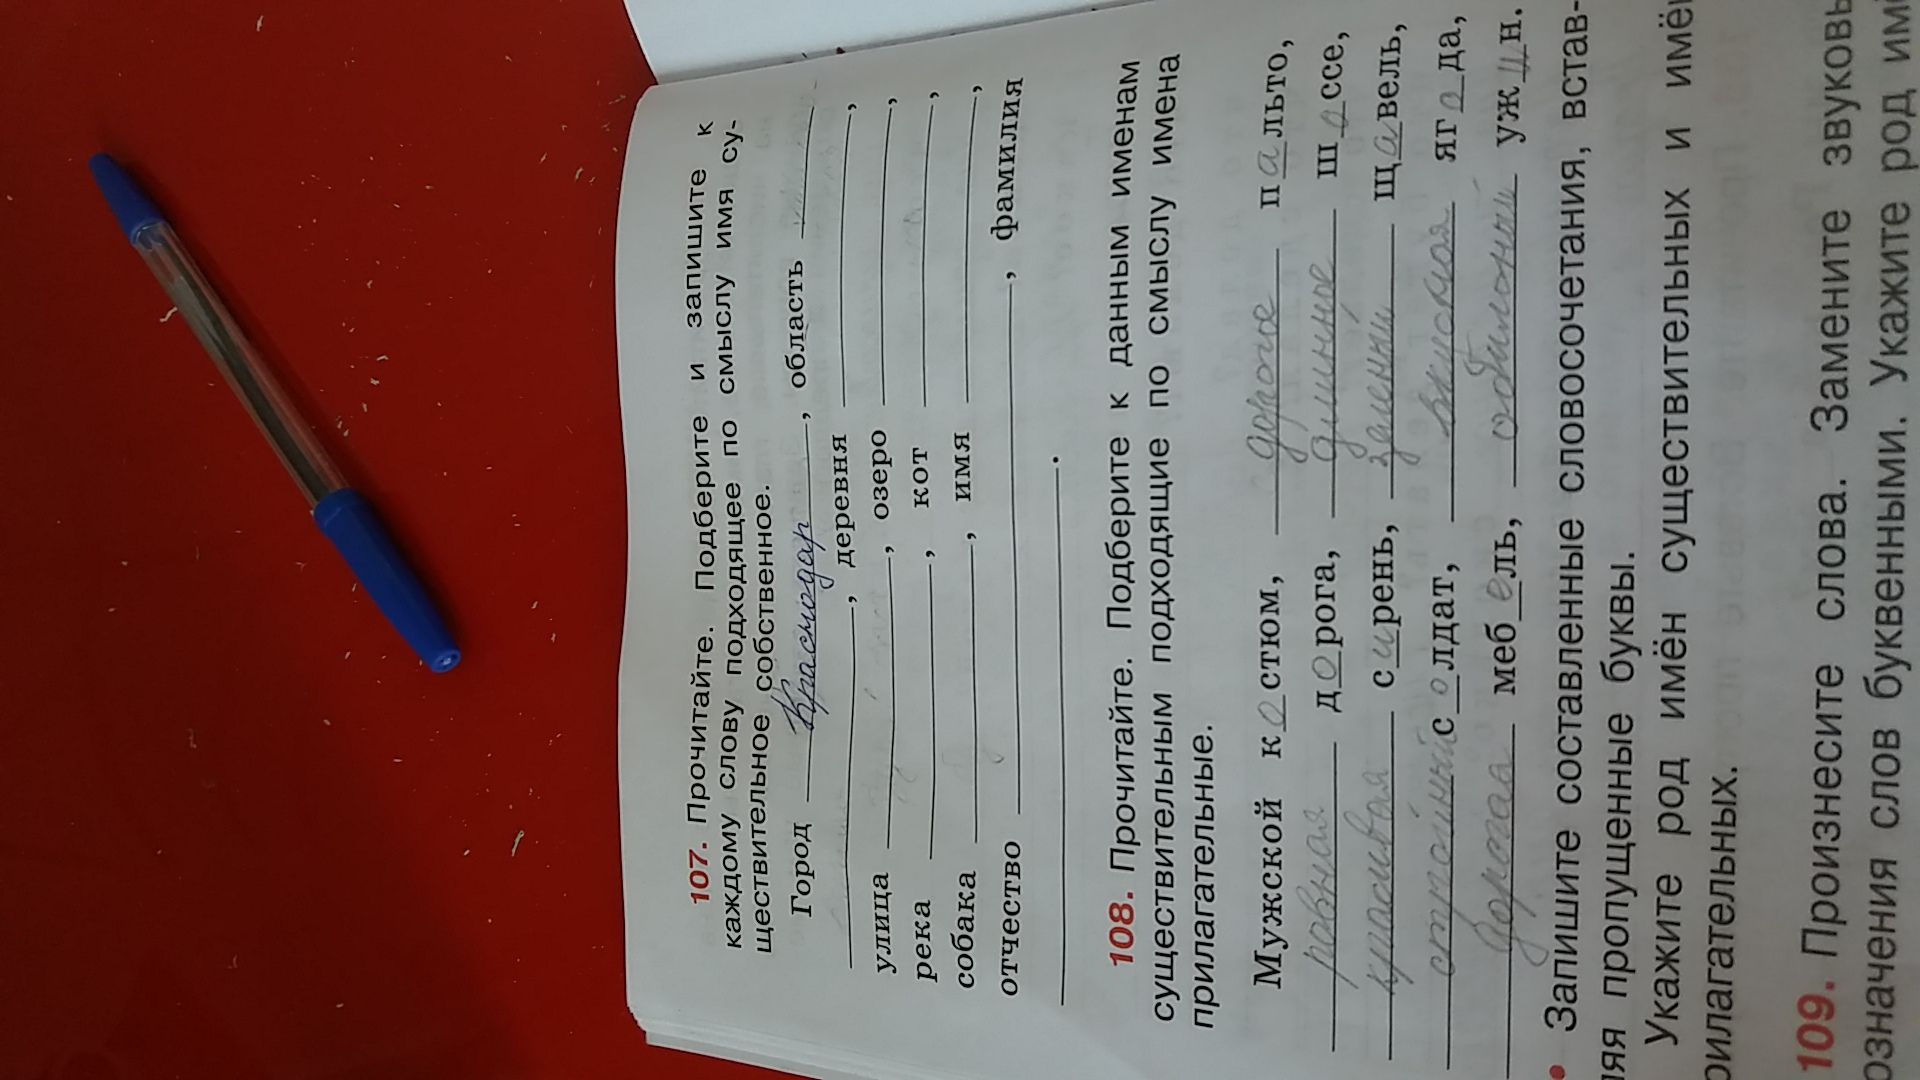 107. Прочитайте. Подберите и запишите к
каждому слову подходящее по смыслу имя су-
ществительное собственное.
Город Краснодар, область
, деревня ,
улица , озеро ,
река , кот ,
собака , имя ,
отчество , фамилия
.
108. Прочитайте. Подберите к данным именам
существительным подходящие по смыслу имена
прилагательные.
Мужской костюм, пальто,
ровная дорога, длинное шоссе,
красивая сирень, щавель,
солдат, ягода,
дорогая мебель, ужин.
• Запишите составленные словосочетания, встав-
ляя пропущенные буквы.
Укажите род имён существительных и имён
прилагательных.
109. Произнесите слова. Замените звуковые
обозначения слов буквенными. Укажите род